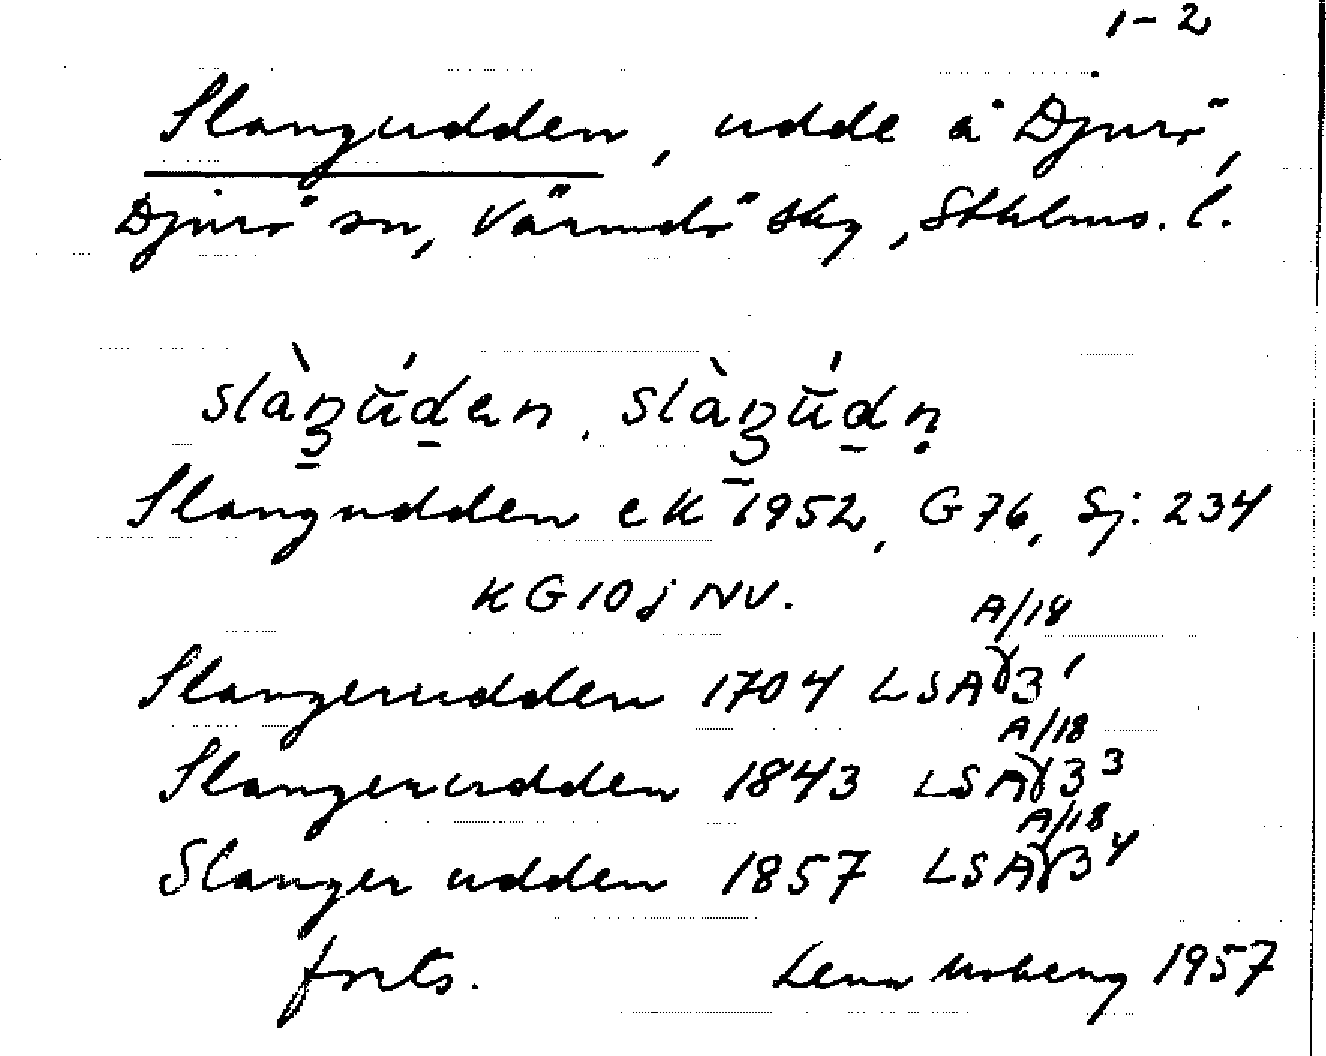 1-2
Slangudden, udde å Djurö,
Djurö sn, Värmdö skg, Sthlms. l.
slàŋúden, slàŋúdṇ
Slangudden ek 1952, G 76, Sj: 234
KG 10 j NV.
A/18
Slangerudden 1704 LSA 3 1
A/18
Slangerudden 1843 LSA 3 3
A/18
Slanger udden 1857 LSA 3 4
forts. Lena Moberg 1957